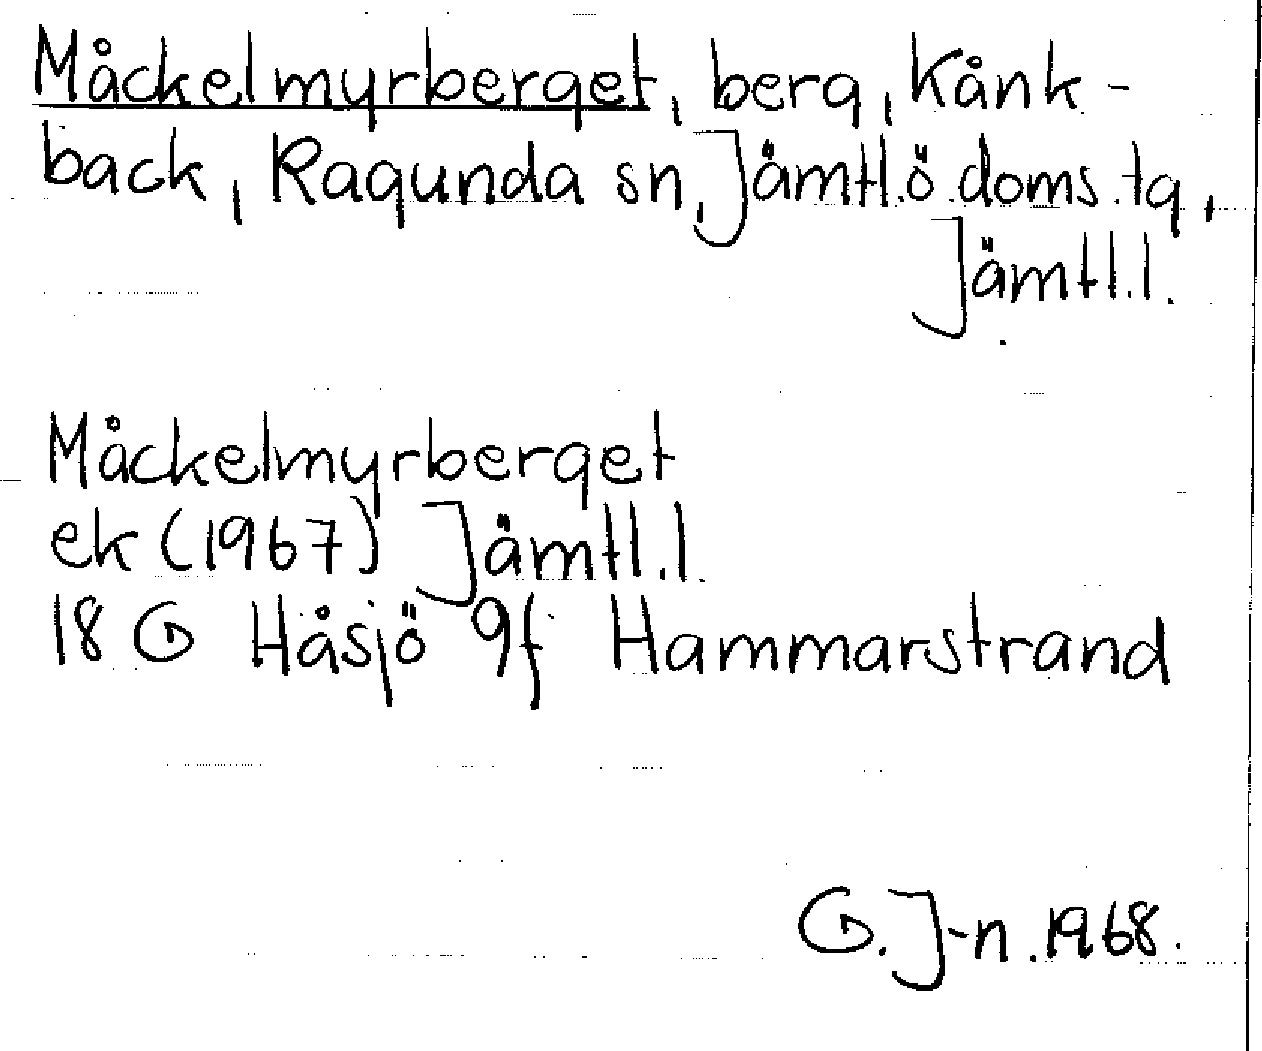 Måckelmyrberget, berg, Kånk-
back, Ragunda sn, Jämtl. ö. doms. tg,
Jämtl. l.
Måckelmyrberget
ek (1967) Jämtl. l.
18 G Håsjö 9f Hammarstrand
G. J-n. 1968.